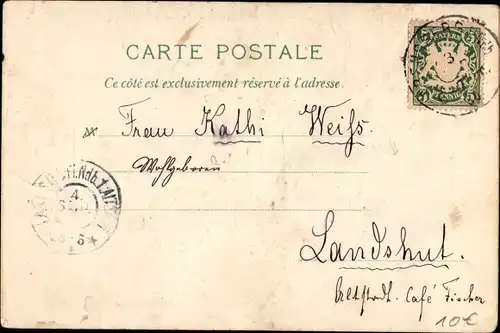 5 BAYERN 5
5 PFENNIG 5
CARTE POSTALE
Ce côté est exclusivement réservé à l'adresse.
Frau Kathi Weiss
Wohlgeboren
Landshut.
Altstadt. Café Fischer
10€